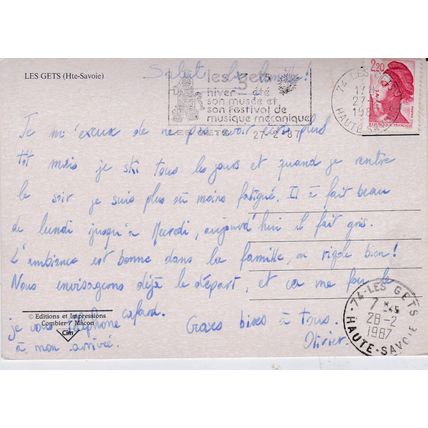 LES GETS (Hte-Savoie)
Salut la famille !
les gets
hiver été
son musée et
son festival de
musique mécanique
LES GETS
27-2-87
2,20
74 LES GETS
27-
HAUTE-SAVOIE
Je m'excuse de ne pas avoir écris plus
tôt mais je ski tous les jours et quand je rentre
le soir je suis plus ou moins fatigué. Il a fait beau
de lundi jusqu'à Mardi, aujourd'hui il fait gris.
L'ambiance est bonne dans la famille, on rigole bien !
Nous envisageons déjà le départ, et ca me fou le
cafard.
© Editions et Impressions
Combier Mâcon
Cim
je vous téléphone
à mon arrivée.
Gross bises à tous.
Olivier.
74-LES GETS
7 H 45
28-2
1987
HAUTE-SAVOIE